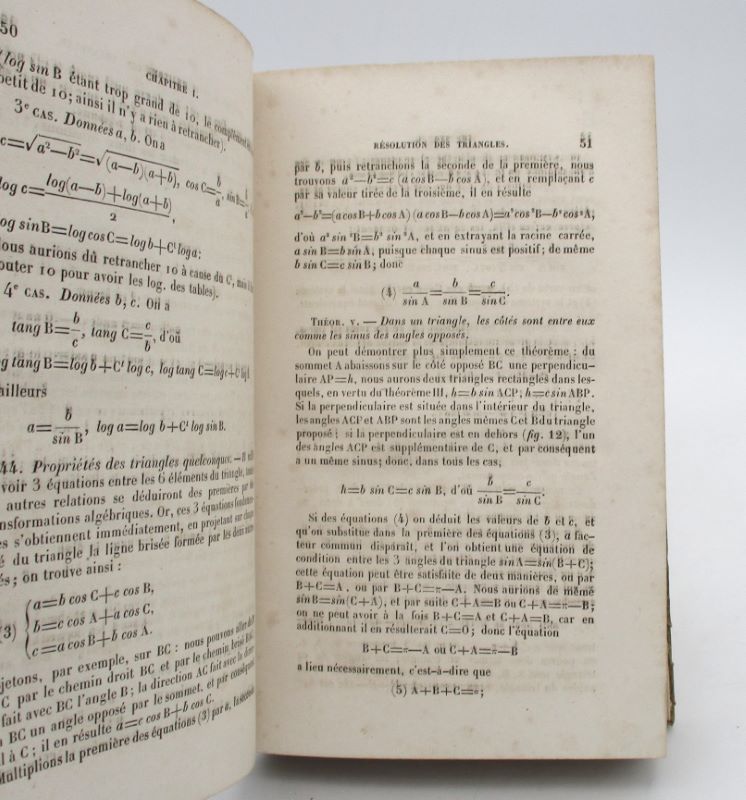 50
CHAPITRE I.
(log sin B étant trop grand de 10, le complément
petit de 10; ainsi il n'y a rien à retrancher).
3e CAS. Données a, b. On a
c=√a²—b²=√(a—b)(a+b), cos C=b/a, sin B=
log c=log(a—b)+log(a+b)/2,
log sinB=log cosC=log b+C' log a;
Nous aurions dû retrancher 10 à cause du C',
outer 10 pour avoir les log. des tables).
4e CAS. Données b, c. On a
tang B=b/c, tang C=c/b, d'où
log tang B=log b+C' log c, log tang C=log c+C' log b.
ailleurs
a=b/sin B, log a=log b+C' log sin B.
44. Propriétés des triangles quelconques. —
voir 3 équations entre les 6 éléments du triangle,
autres relations se déduiront des premières par
nsformations algébriques. Or, ces 3 équations
s s'obtiennent immédiatement, en projetant sur chaque
é du triangle la ligne brisée formée par les deux autres
és; on trouve ainsi :
(3) { a=b cos C+c cos B,
b=c cos A+a cos C,
c=a cos B+b cos A.
jetons, par exemple, sur BC : nous pouvons aller de
C par le chemin droit BC et par le chemin brisé
fait avec BC l'angle B; la direction AC fait avec la direc
BC un angle opposé par le sommet, et par conséquent
l à C; il en résulte a=c cos B+b cos C.
Multiplions la première des équations (3) par a, la seconde
RÉSOLUTION DES TRIANGLES. 51
par b, puis retranchons la seconde de la première, nous
trouvons a²—b²=c (a cos B—b cos A), et en remplaçant c
par sa valeur tirée de la troisième, il en résulte
a²—b²=(a cos B+b cos A) (a cos B—b cos A)=a² cos² B—b² cos² A;
d'où a² sin² B=b² sin² A, et en extrayant la racine carrée,
a sin B=b sin A, puisque chaque sinus est positif; de même
b sin C=c sin B; donc
(4) a/sin A=b/sin B=c/sin C.
THÉOR. V. — Dans un triangle, les côtés sont entre eux
comme les sinus des angles opposés.
On peut démontrer plus simplement ce théorème : du
sommet A abaissons sur le côté opposé BC une perpendicu-
laire AP=h, nous aurons deux triangles rectangles dans les-
quels, en vertu du théorème III, h=b sin ACP, h=c sin ABP.
Si la perpendiculaire est située dans l'intérieur du triangle,
les angles ACP et ABP sont les angles mêmes C et B du triangle
proposé; si la perpendiculaire est en dehors (fig. 12), l'un
des angles ACP est supplémentaire de C, et par conséquent
a un même sinus; donc, dans tous les cas,
h=b sin C=c sin B, d'où b/sin B=c/sin C.
Si des équations (4) on déduit les valeurs de b et c, et
qu'on substitue dans la première des équations (3), a fac-
teur commun disparaît, et l'on obtient une équation de
condition entre les 3 angles du triangle sin A=sin(B+C);
cette équation peut être satisfaite de deux manières, ou par
B+C=A, ou par B+C=π—A. Nous aurions de même
sin B=sin(C+A), et par suite C+A=B ou C+A=π—B;
on ne peut avoir à la fois B+C=A et C+A=B, car en
additionnant il en résulterait C=0; donc l'équation
B+C=π—A ou C+A=π—B
a lieu nécessairement, c'est-à-dire que
(5) A+B+C=π;